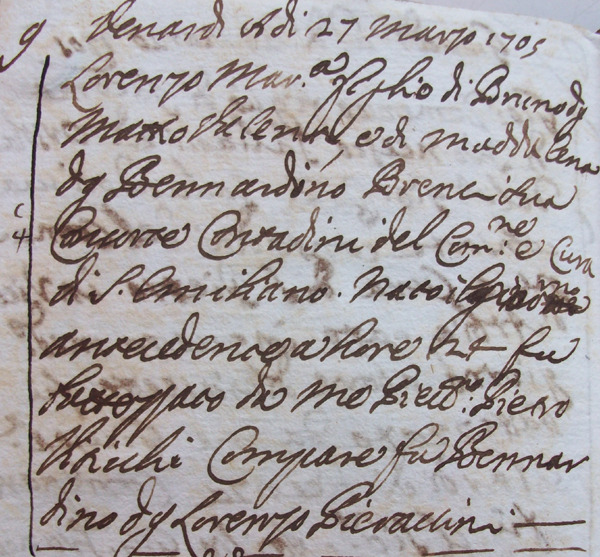 9 Venardì Adi 27 Marzo 1705
Lorenzo Mar.ª figlio di Bruno dg
Matteo Valenti, e di Maddalena
dg Bennardino Brenci sua
Consorte Contadini del Com:ne e Cura
di S. Emiliano. Nato il giorno
antecedence a hore 24 fu
da me Piet:
Compare fù Bennar
dino dg Lorenzo Pieraccini